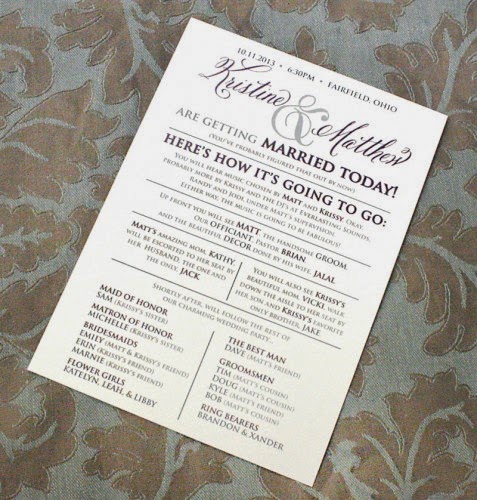 10.11.2013 • 6:30PM • FAIRFIELD, OHIO
Kristine & Matthew
ARE GETTING MARRIED TODAY!
(YOU'VE PROBABLY FIGURED THAT OUT BY NOW)
HERE'S HOW IT'S GOING TO GO:
YOU WILL HEAR MUSIC CHOSEN BY MATT AND KRISSY (OKAY,
PROBABLY MORE BY KRISSY AND THE DJ'S AT EVERLASTING SOUNDS,
RANDY AND JODI, UNDER MATT'S SUPERVISION).
EITHER WAY, THE MUSIC IS GOING TO BE FABULOUS!
UP FRONT YOU WILL SEE MATT, THE HANDSOME GROOM,
OUR OFFICIANT, PASTOR BRIAN
AND THE BEAUTIFUL DECOR DONE BY HIS WIFE, JALAL
MATT'S AMAZING MOM, KATHY,
WILL BE ESCORTED TO HER SEAT BY
HER HUSBAND, THE ONE AND
THE ONLY, JACK
YOU WILL ALSO SEE KRISSY'S
BEAUTIFUL MOM, VICKI, WALK
DOWN THE AISLE TO HER SEAT BY
HER SON AND KRISSY'S FAVORITE
ONLY BROTHER, JAKE
SHORTLY AFTER, WILL FOLLOW THE REST OF
OUR CHARMING WEDDING PARTY...
MAID OF HONOR
SAM (KRISSY'S SISTER)
MATRON OF HONOR
MICHELLE (KRISSY'S SISTER)
BRIDESMAIDS
EMILY (MATT & KRISSY'S FRIEND)
ERIN (KRISSY'S FRIEND)
MARNIE (KRISSY'S FRIEND)
FLOWER GIRLS
KATELYN, LEAH, & LIBBY
THE BEST MAN
DAVE (MATT'S FRIEND)
GROOMSMEN
TIM (MATT'S COUSIN)
DOUG (MATT'S COUSIN)
KYLE (MATT'S COUSIN)
BOB (MATT'S COUSIN)
RING BEARERS
BRANDON & XANDER